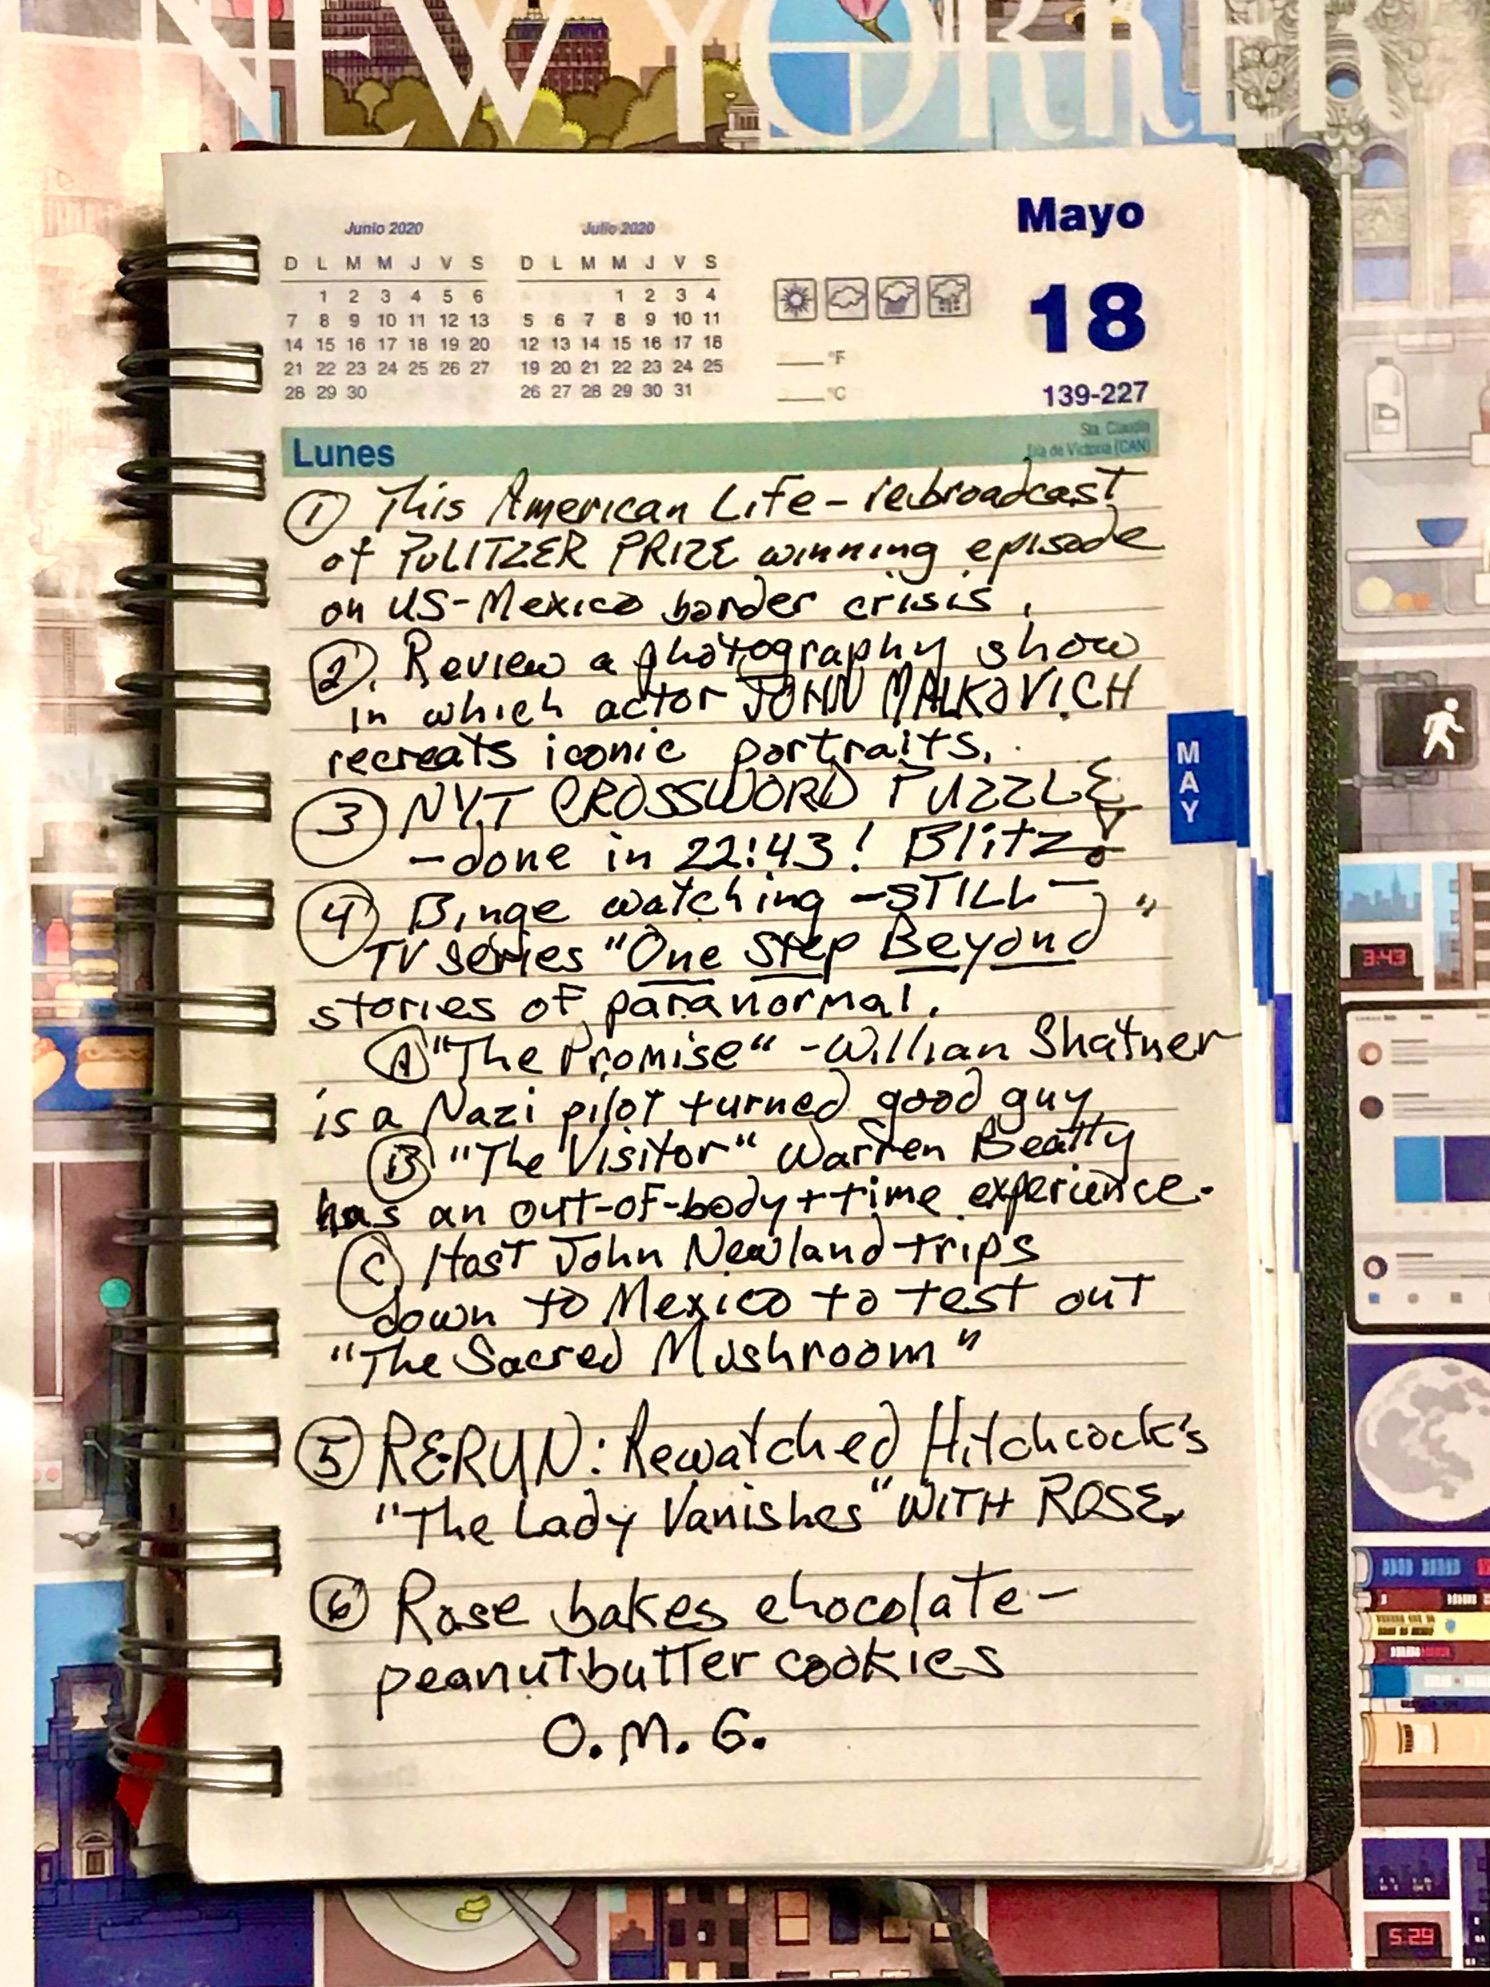 NEW YORKER
Junio 2020
D L M M J V S
1 2 3 4 5 6
7 8 9 10 11 12 13
14 15 16 17 18 19 20
21 22 23 24 25 26 27
28 29 30
Julio 2020
D L M M J V S
1 2 3 4
5 6 7 8 9 10 11
12 13 14 15 16 17 18
19 20 21 22 23 24 25
26 27 28 29 30 31
°F
°C
Mayo
18
139-227
Lunes
Sta. Claudia
Día de Victoria (CAN)
① This American Life - rebroadcast
of PULITZER PRIZE winning episode
on US-Mexico border crisis.
②. Review a photography show
in which actor JOHN MALKOVICH
recreats iconic portraits.
③ NYT CROSSWORD PUZZLE
- done in 22:43! Blitz!
④ Binge watching - STILL -
TV series "One Step Beyond"
stories of paranormal.
Ⓐ "The Promise" - Willian Shatner
is a Nazi pilot turned good guy
Ⓑ "The Visitor" Warren Beatty
has an out-of-body + time experience.
Ⓒ Host John Newland trips
down to Mexico to test out
"The Sacred Mushroom"
⑤ RERUN: Rewatched Hitchcock's
"The Lady Vanishes" WITH ROSE.
⑥ Rose bakes chocolate-
peanutbutter cookies
O.M.G.
MAY
3:43
5:29